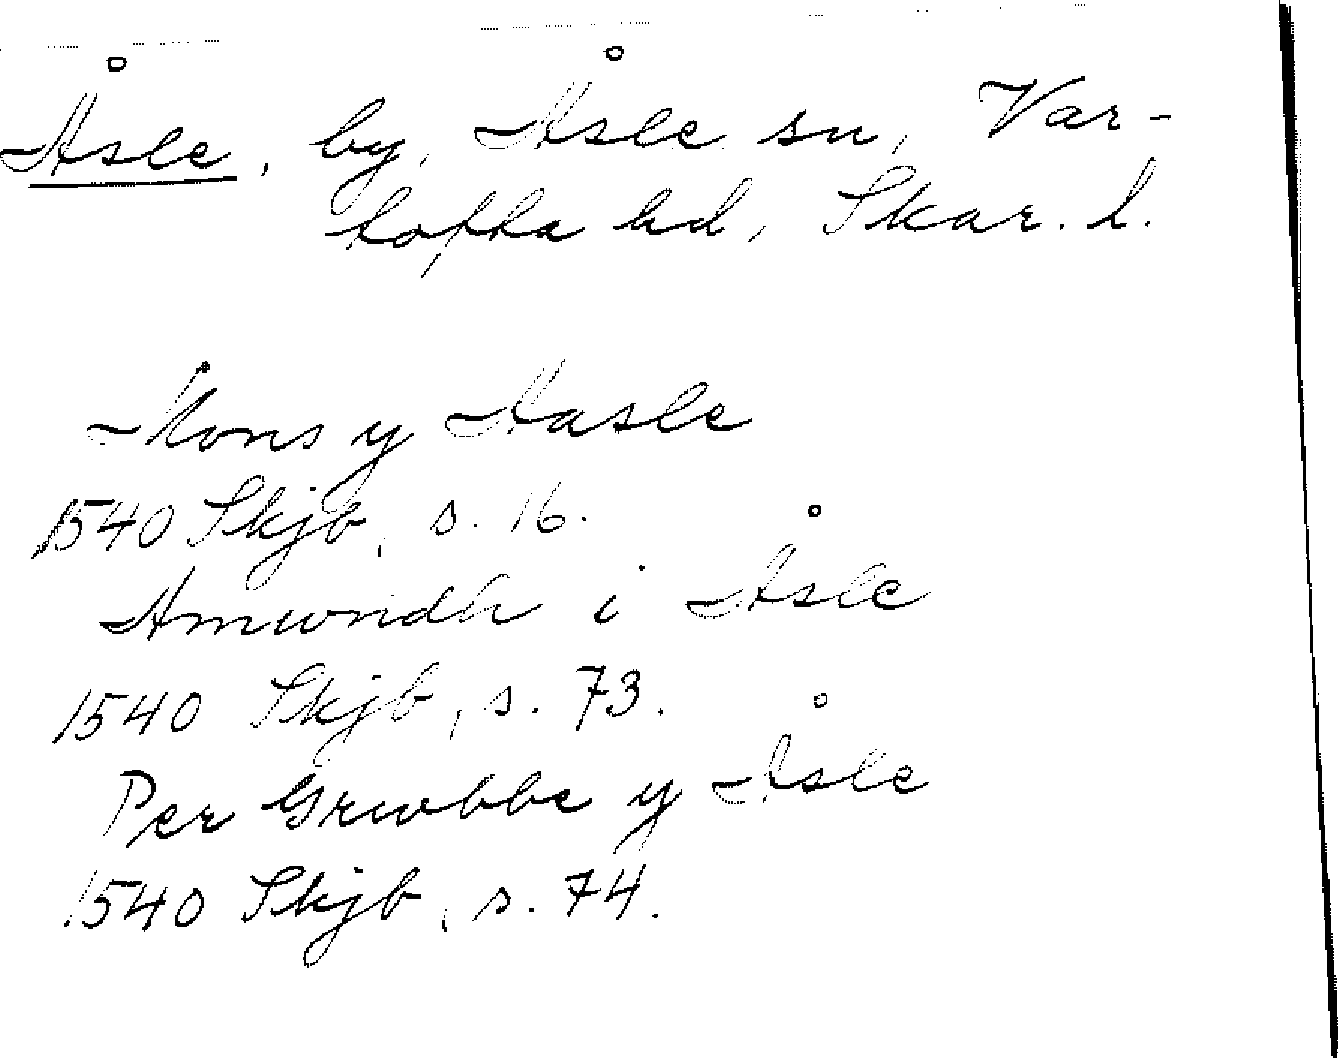 Åsle, by, Åsle sn, Var-
tofta hd, Skar. l.
Mons y Aasle
1540 Skjb, s. 16.
Amwndh i Åsle
1540 Skjb, s. 73.
Per Grwbbe y Åsle
1540 Skjb, s. 74.